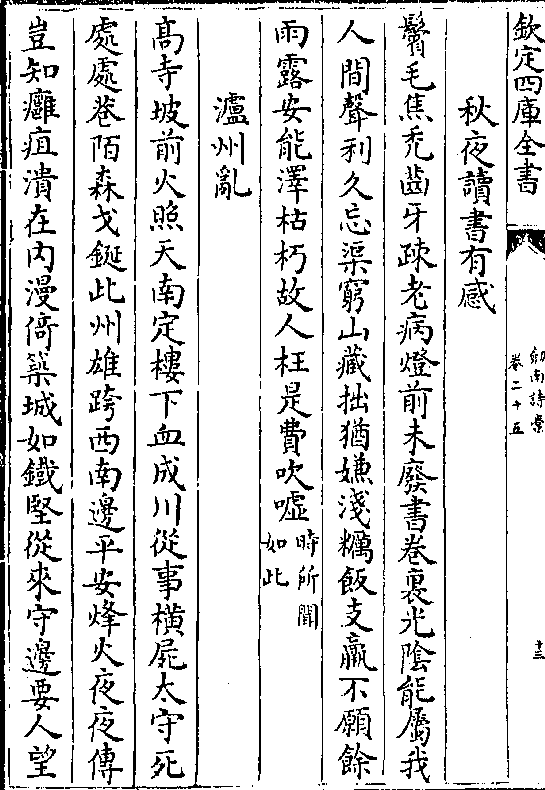 欽定四庫全書
劍南詩稾
卷二十五
十三
秋夜讀書有感
鬢毛焦禿齒牙疎老病燈前未廢書卷裏光陰能屬我
人間聲利久忘渠窮山藏拙猶嫌淺糲飯支羸不願餘
雨露安能澤枯朽故人枉是費吹噓時所聞
如此
瀘州亂
髙寺坡前火照天南定樓下血成川從事橫屍太守死
處處巷陌森戈鋋此州雄跨西南邊平安烽火夜夜傳
豈知癰疽潰在内漫倚築城如鐵堅從來守邊要人望